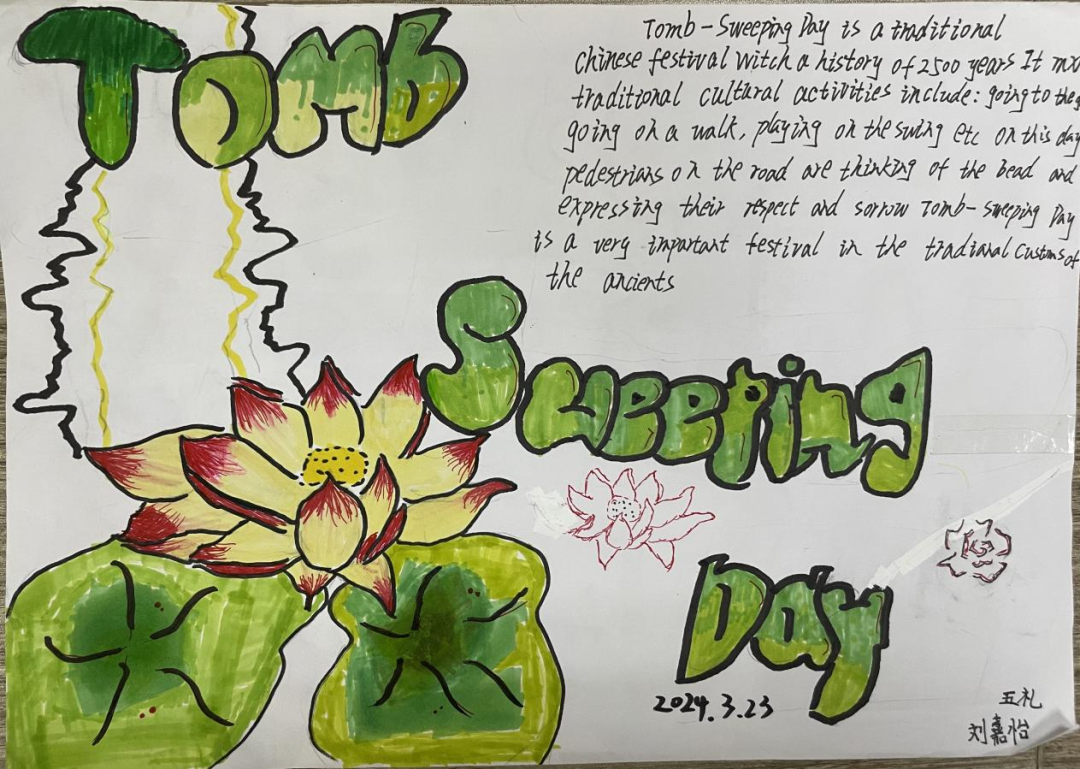 Tomb
Tomb-Sweeping Day is a traditional
chinese festival witch a history of 2500 years It
traditional cultural activities include: going to the
going on a walk, playing on the swing etc on this day
pedestrians on the road are thinking of the bead and
expressing their respect and sorrow Tomb-Sweeping Day
is a very important festival in the tradianal customs of
the ancients
Sweeping
Day
2024.3.23
五礼
刘嘉怡